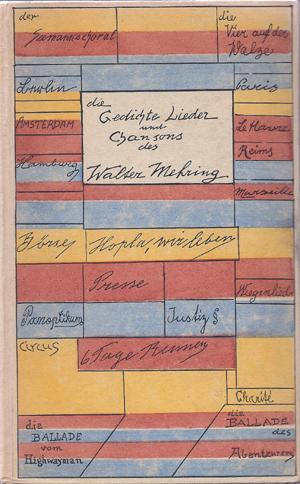 der
Seemannschoral
die
Vier auf der
Walze
London
Paris
die
Gedichte Lieder
und
Chansons
des
Walter Mehring
AMSTERDAM
Le Havre
Hamburg
Reims
Marseille
Börse
Hopla, wir leben
Presse
Wiegenlied
Panoptikum
Justiz §
Circus
6 Tage Rennen
Charité
die
BALLADE
vom
Highwayman
die
BALLADE
des
Abenteurers